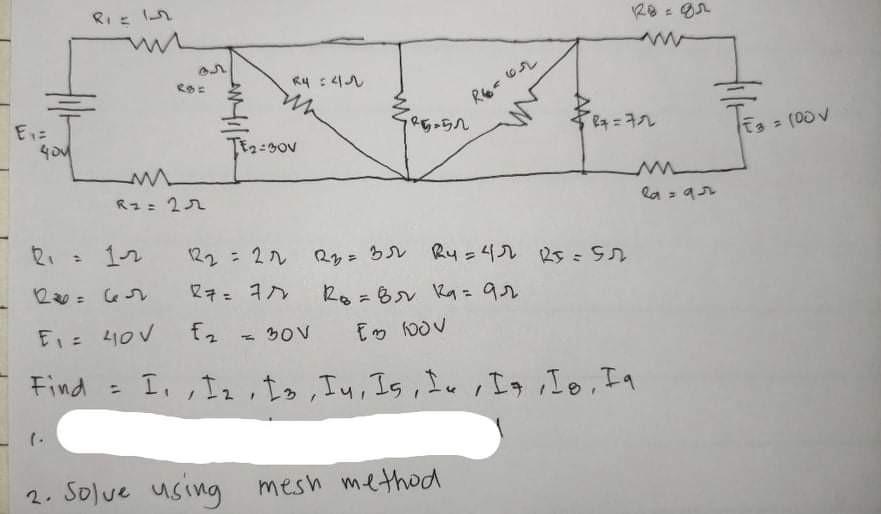 R1 = 1Ω
R8 = 8Ω
3Ω
R3 =
R4 = 4Ω
R6 = 6Ω
R5=5Ω
R7=7Ω
E3 = 100V
E1=
40V
E2=30V
R2 = 2Ω
R9=9Ω
R1 = 1Ω R2 = 2Ω R3 = 3Ω R4=4Ω R5=5Ω
R6= 6Ω R7= 7Ω R8 = 8Ω R9= 9Ω
E1 = 40V E2 = 30V E3 100V
Find = I1, I2, I3, I4, I5, I6, I7, I8, I9
1.
2. Solve using mesh method